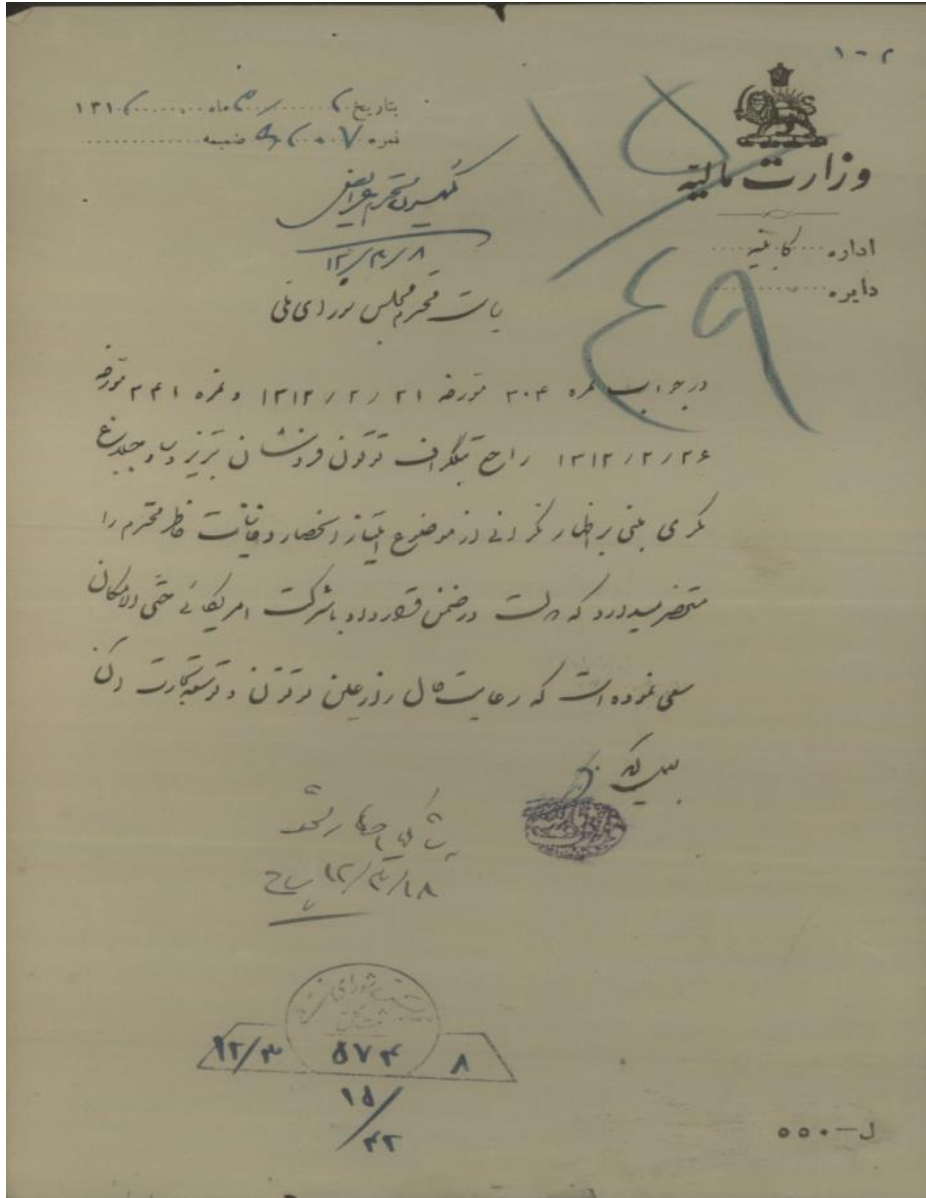 ۱-۲
وزارت مالیه
اداره کابینه
دایره
بتاریخ ماه ۱۳۱
نمره ضمیمه
۱۵
۴۹
کمیسیون محترم عرایض
۱۲/۳/۸
ریاست محترم مجلس شورای ملی
در جواب نمره ۳۰۴ مورخه ۲۱ / ۲ / ۱۳۱۲ و نمره ۳۴۱ مورخه
۲۶ / ۲ / ۱۳۱۲ راجع بتلگراف توتون فروشان تبریز و
مبنی بر اظهار نگرانی از موضوع امتیاز انحصار دخانیات خاطر محترم را
مستحضر میدارد که دولت در ضمن قرارداد با شرکت امریکائی حتی الامکان
سعی نموده است که رعایت حال زارعین توتون و توسعه تجارت آن
بعمل آید
۱۲/۳/۱۸
۸
۵۷۴
۱۲/۳
۱۵
۴۲
ل-۵۵۰